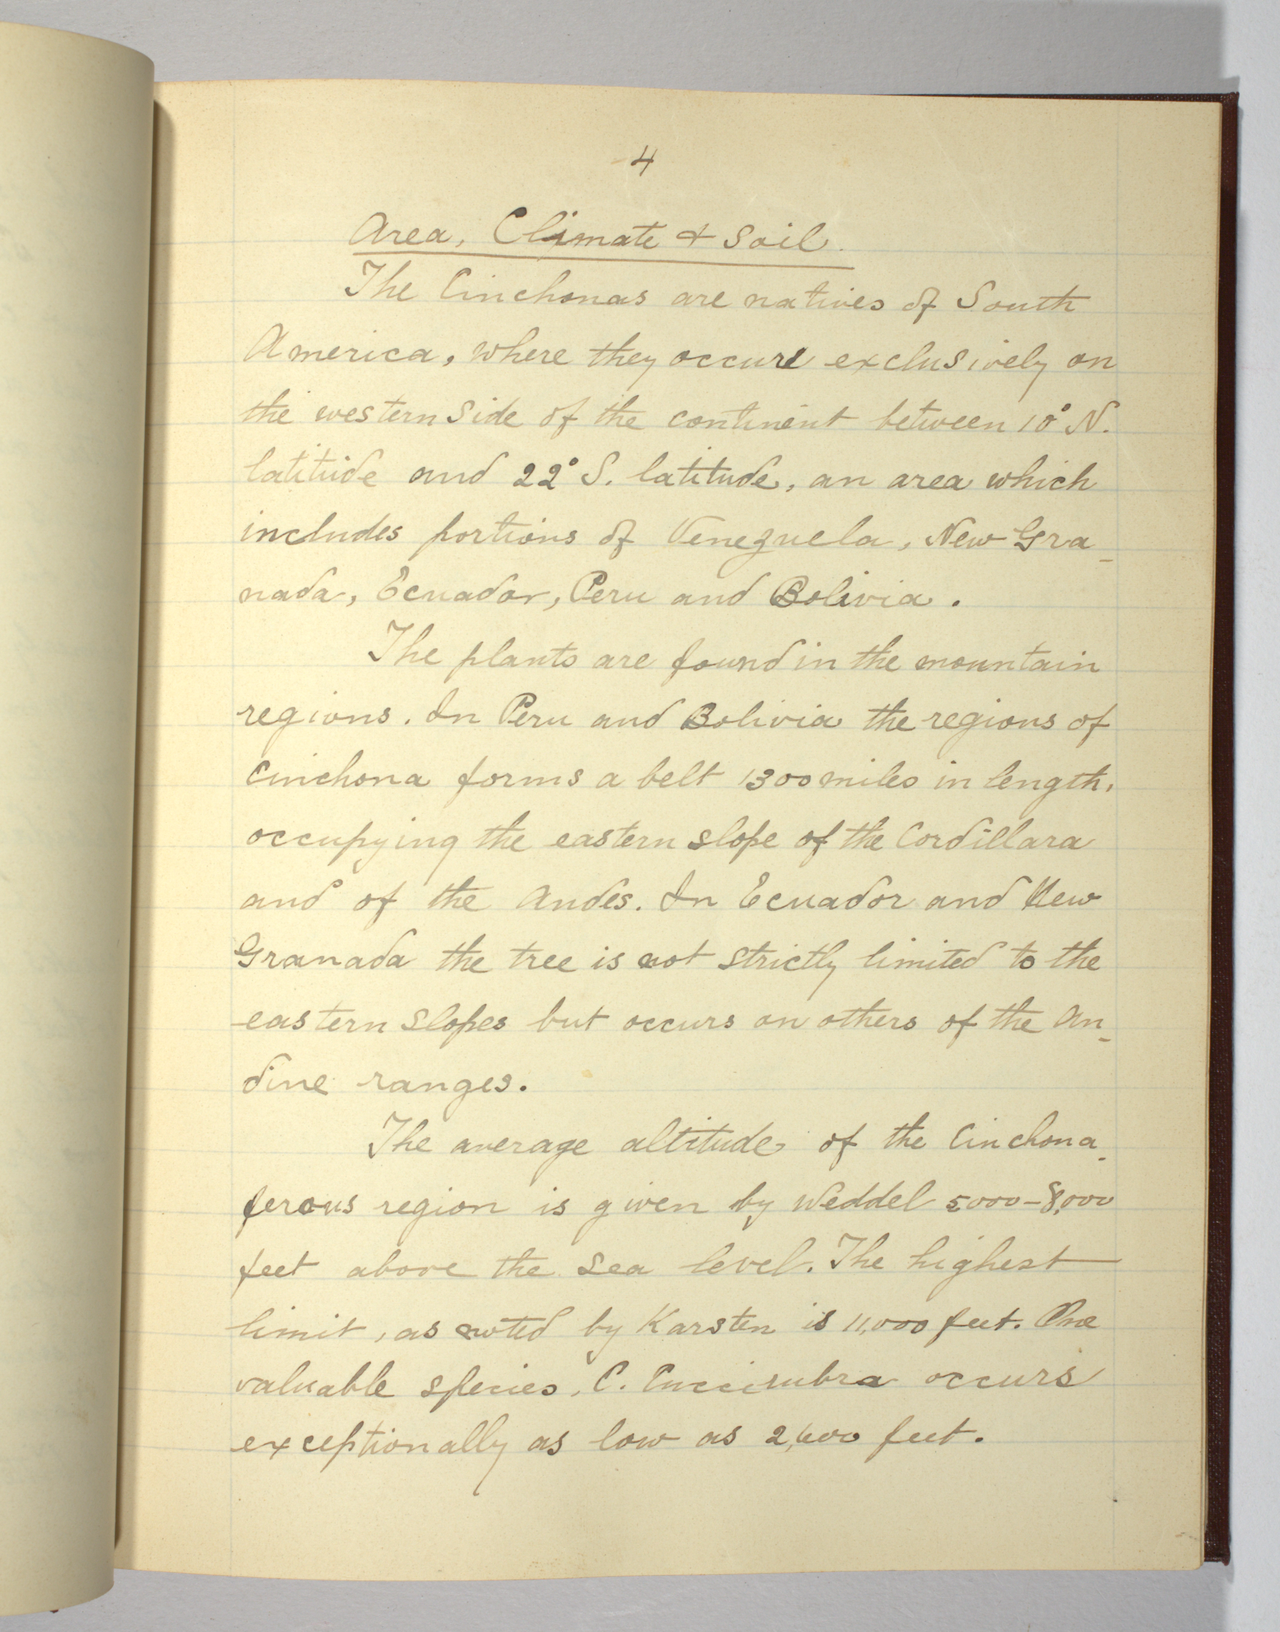 4
Area, Climate & Soil.
The Cinchonas are natives of South
America, where they occure exclusively on
the western side of the continent between 10° N.
latitude and 22° S. latitude, an area which
includes portions of Venezuela, New Gra-
nada, Ecuador, Peru and Bolivia.
The plants are found in the mountain
regions. In Peru and Bolivia the regions of
Cinchona forms a belt 1300 miles in length,
occupying the eastern slope of the Cordillara
and of the Andes. In Ecuador and New
Granada the tree is not strictly limited to the
eastern slopes but occurs on others of the An-
dine ranges.
The average altitude of the Cinchona-
ferous region is given by Weddel 5000-8,000
feet above the sea level. The highest
limit, as noted by Karsten is 11,000 feet. One
valuable species, C. Succirubra occurs
exceptionally as low as 2,600 feet.